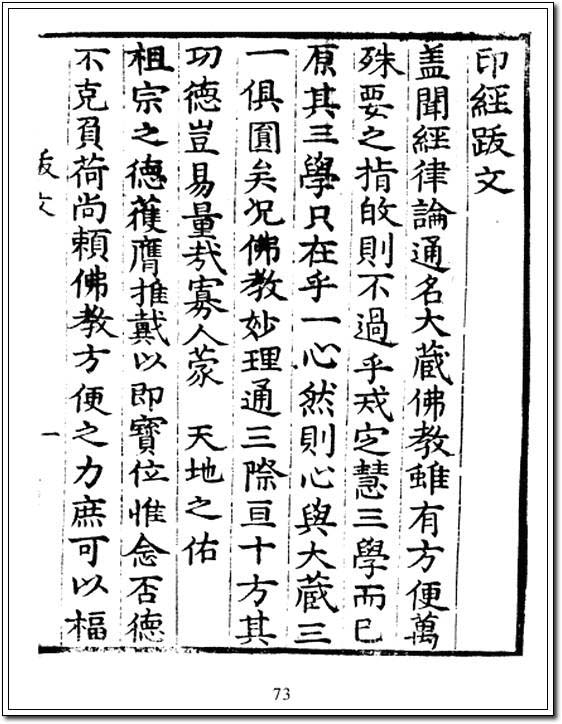 印経跋文
盖聞経律論通名大蔵佛教雖有方便萬
殊要之指的則不過乎戒定慧三學而已
原其三學只在乎一心然則心與大蔵三
一俱圓矣况佛教妙理通三際亘十方其
功德豈易量㢤寡人蒙　天地之佑
祖宗之德獲膺推戴以即寶位惟念否德
不克負荷尚頼佛教方便之力庶可以福
跋文
一
73